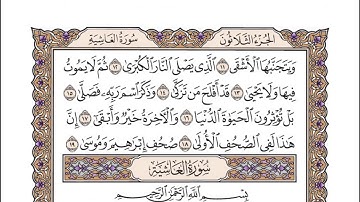 الجزء الثلاثون سورة الغاشية
ويتجنبها الأشقى ١١ الذي يصلى النار الكبرى ١٢ ثم لا يموت
فيها ولا يحيى ١٣ قد أفلح من تزكى ١٤ وذكر اسم ربه فصلى ١٥
بل تؤثرون الحيوة الدنيا ١٦ والآخرة خير وأبقى ١٧ إن
هذا لفي الصحف الأولى ١٨ صحف إبرهيم وموسى ١٩
سورة الغاشية
بسم الله الرحمن الرحيم